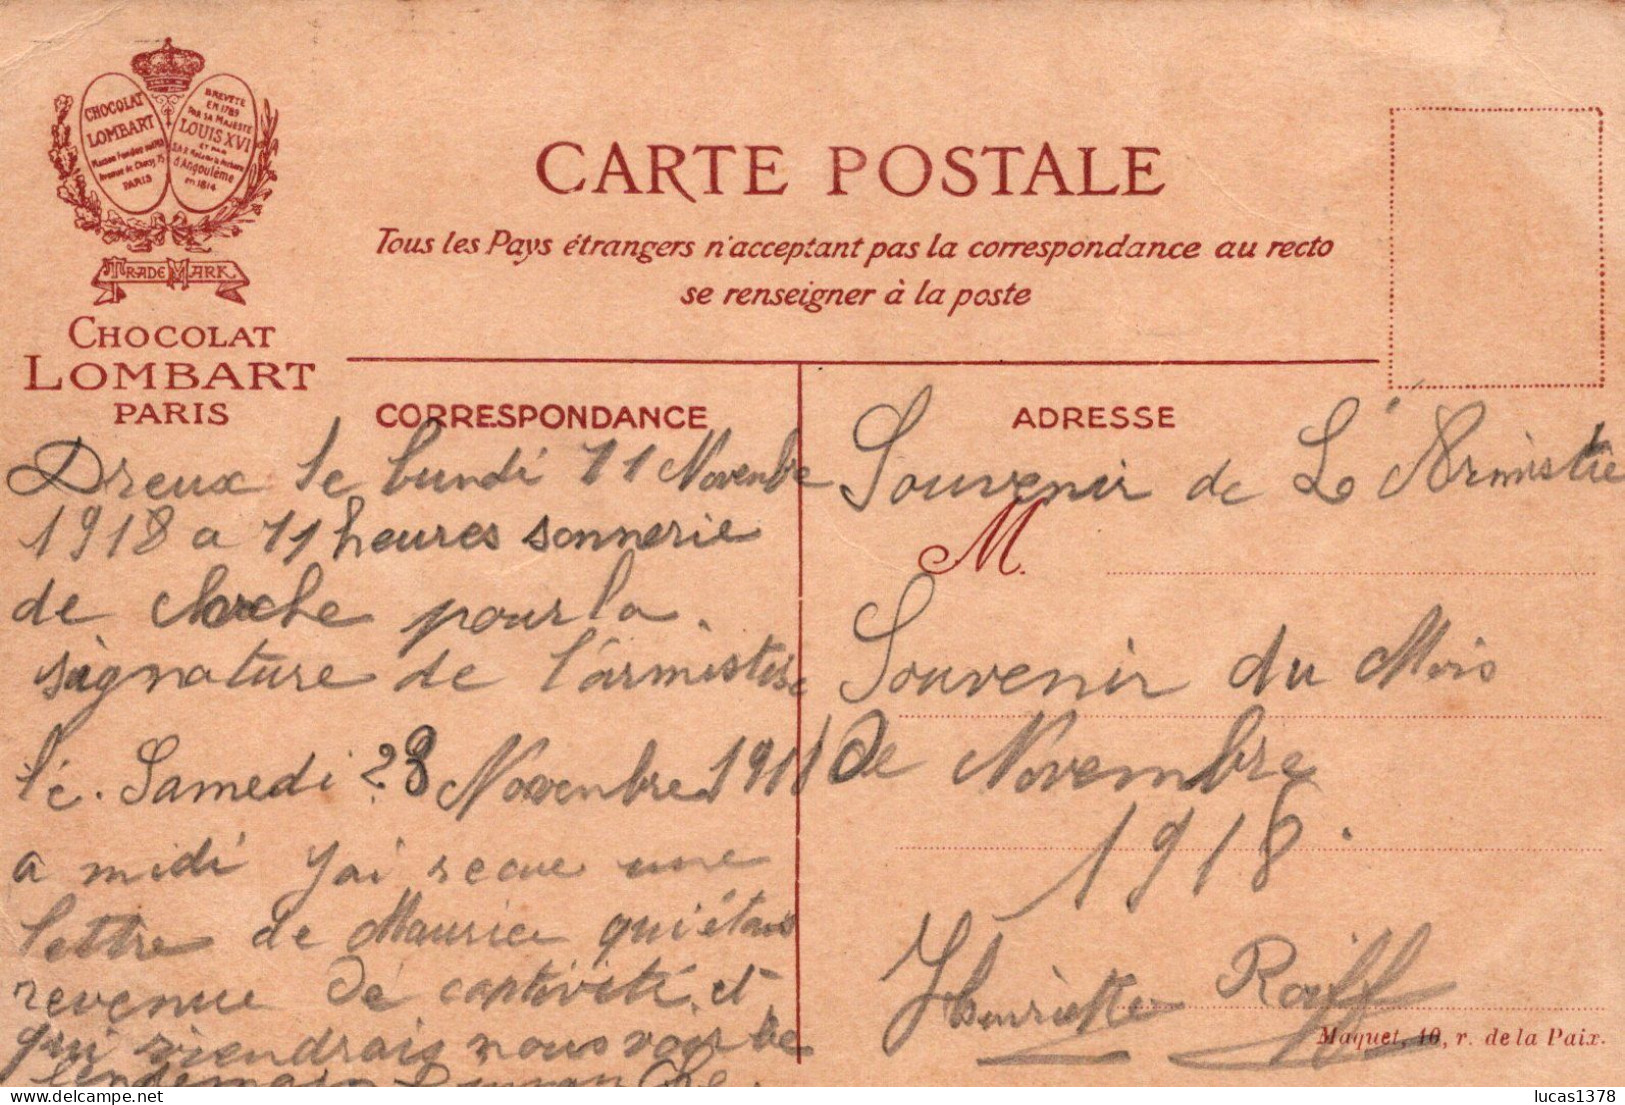 CHOCOLAT
LOMBART
Avenue de Choisy 75
PARIS
BREVETÉ
EN 1785
PAR SA MAJESTÉ
LOUIS XVI
ET PAR
d'Angoulême
en 1814
TRADE MARK
CHOCOLAT
LOMBART
PARIS
CARTE POSTALE
Tous les Pays étrangers n'acceptant pas la correspondance au recto
se renseigner à la poste
CORRESPONDANCE
Dreux le lundi 11 Novenbre
1918 a 11 heures sonnerie
de cloche pour la
signature de l'armistise
le Samedi 23 Novenbre 1918
a midi j'ai recue une
lettre de Maurice qui étais
revenue de captivité et
qui viendrais nous voir le
lendemain Dimanche
ADRESSE
Souvenir de L'Armistie
M.
Souvenir du Mois
de Novembre
1918.
Henriette Roiff
Maquet, 10, r. de la Paix.
delcampe.net
lucas1378